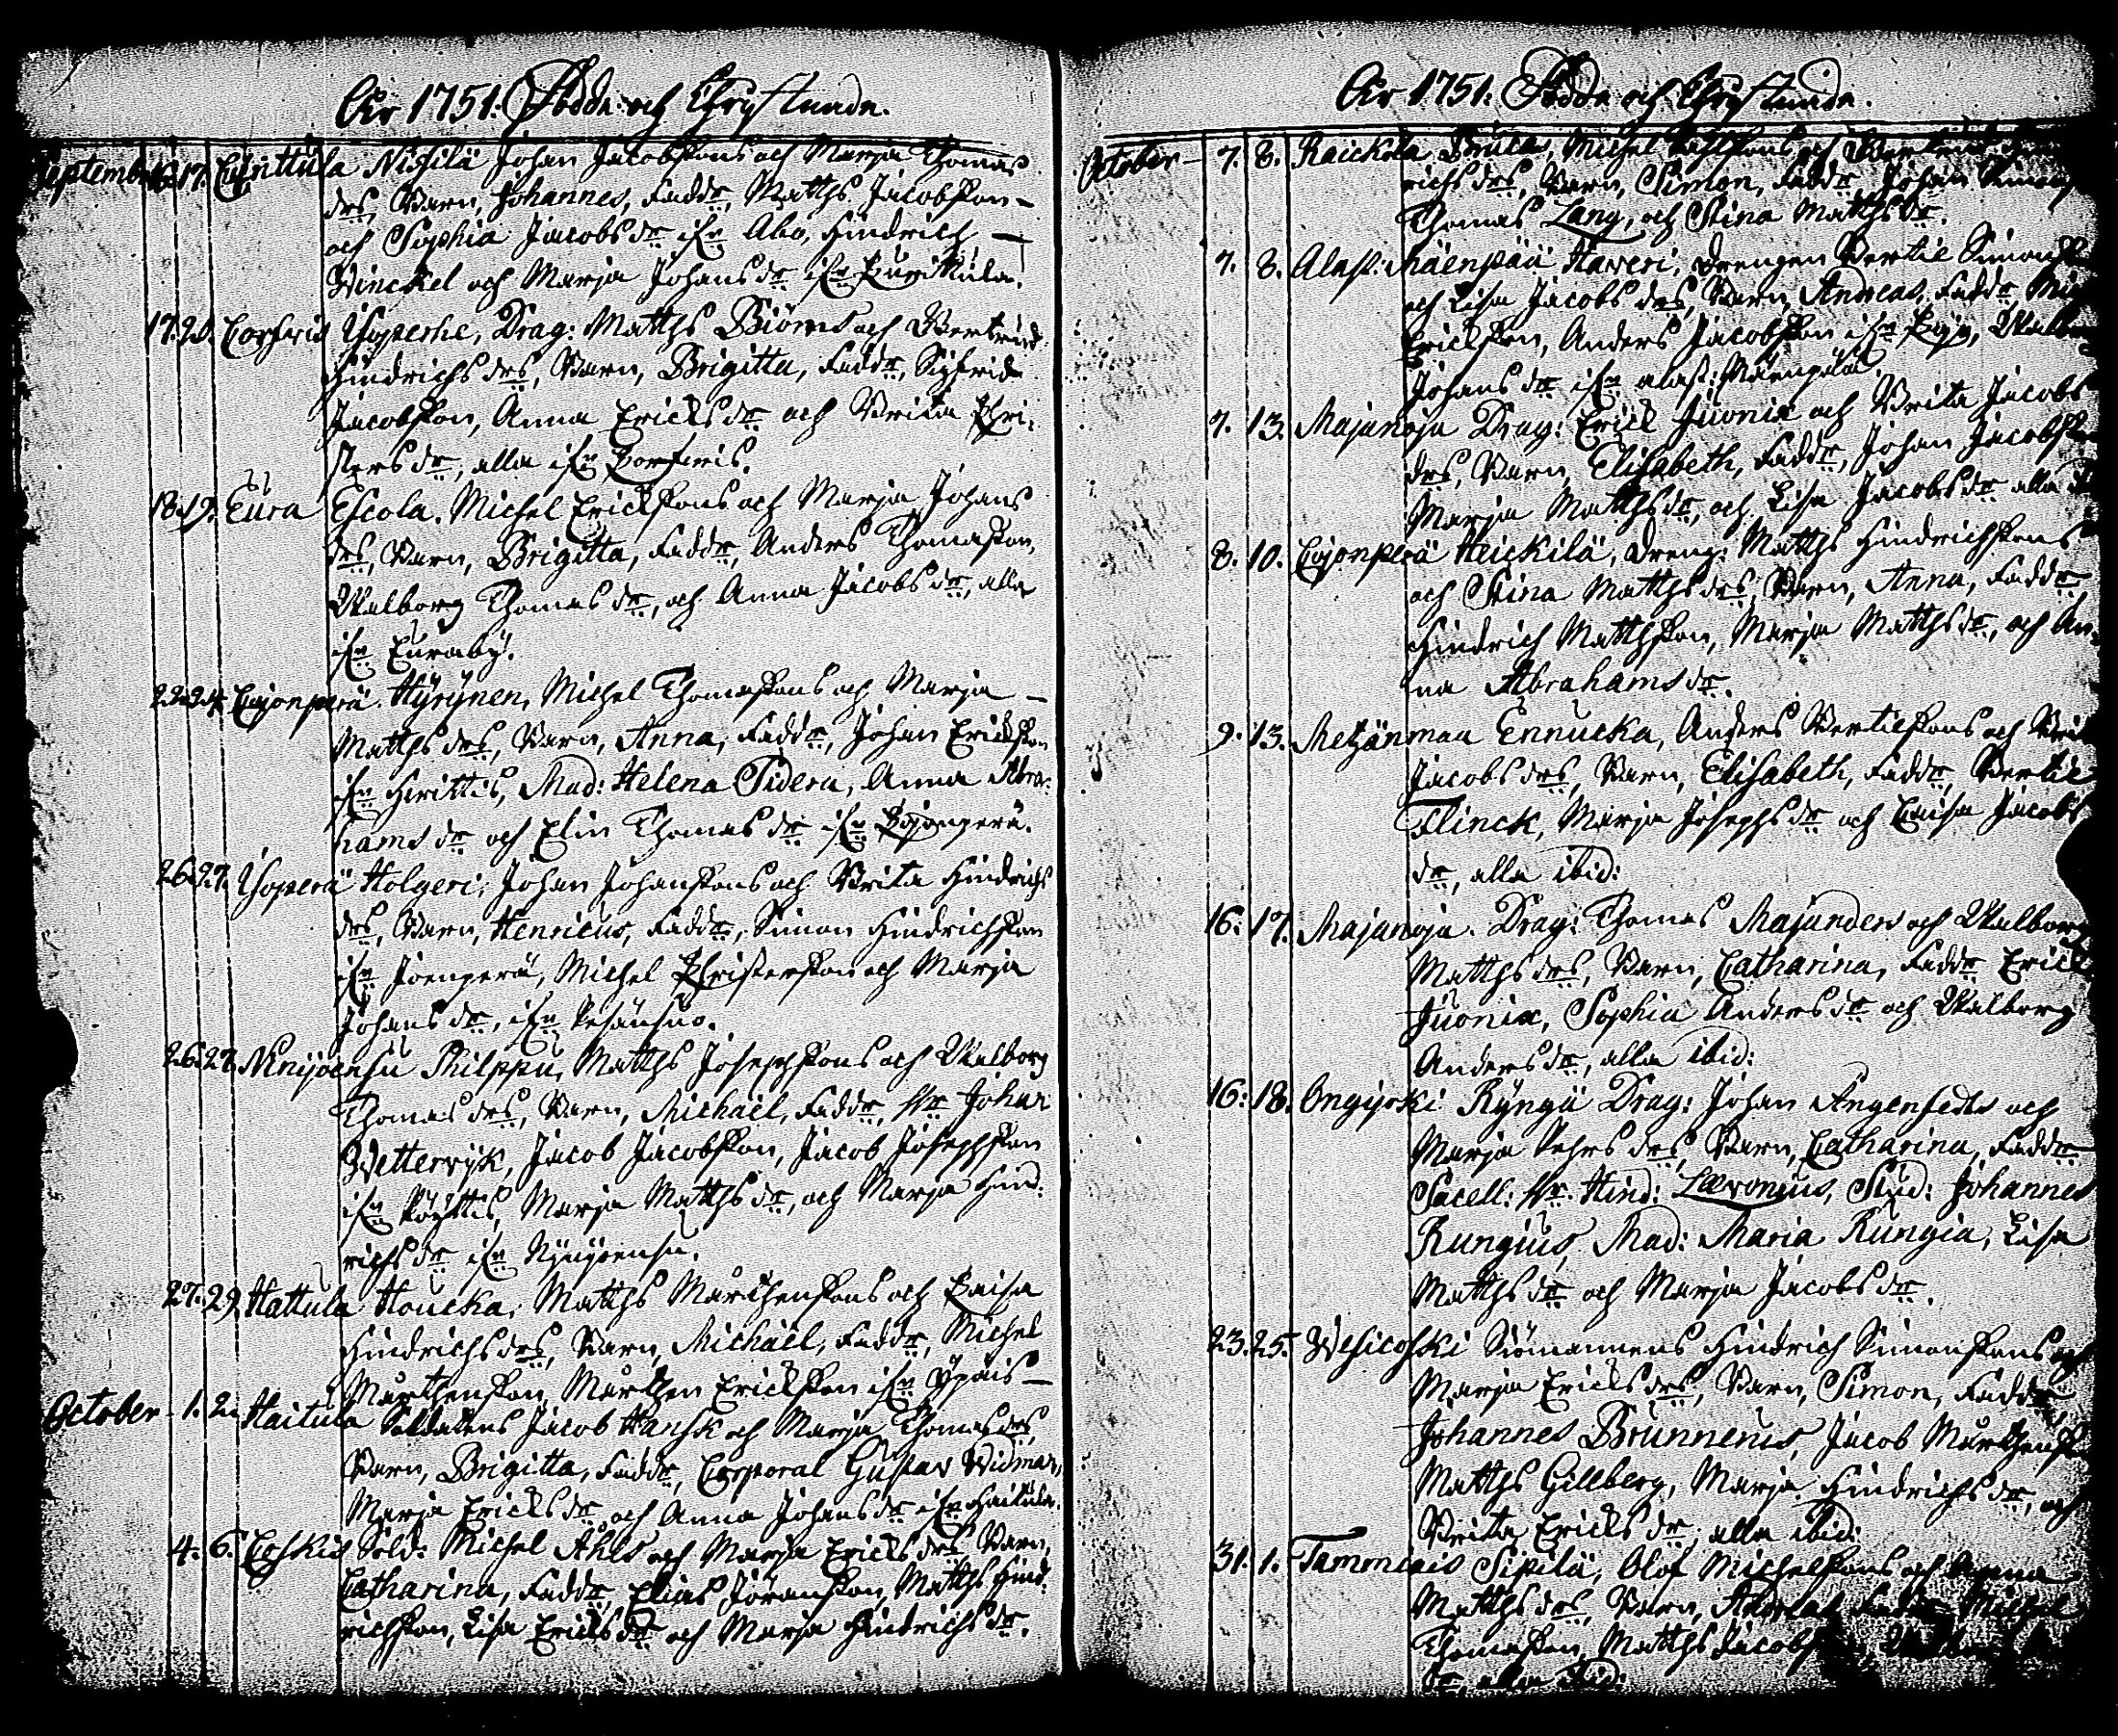 Åhr 1751. Födde och Chrystnade.
September 16. 17. Cynttula Nissilä Johan Jacobssons och Marja Thomas
drs, Barn, Johannes, Faddr, Matths Jacobsson
och Sophia Jacobs dr ifrn Abo, Hindrich
Winckel och Marja Johans dr ifrn Purikula.
17. 20. Corfwis Ysoperhe, Drag: Matths Biörns och Bertrud
Hindrichs drs, Barn, Brigitta, Faddr, Sigfrid
Jacobsson, Anna Ericks dr och Brita Chri-
sters dr, alla ifrn Corfwis.
18. 19. Eura Escola. Michel Erickssons och Marja Johans
drs, Barn, Brigitta, Faddr, Anders Thomasson,
Walborg Thomas dr, och Anna Jacobs dr, alla
ifrn Euraby.
22. 24. Cojonperä. Hyrynen, Michel Thomassons och Marja
Matths drs, Barn, Anna, Faddr, Johan Ericksson
ifrn Hirittis, Mad: Helena Tidera, Anna Abra-
hams dr och Elin Thomas dr ifrn Cojonperä.
26. 27. Ysoperä Holgeri, Johan Johanssons och Brita Hindrichs
drs, Barn, Henricus, Faddr, Simon Hindrichsson
ifrn Joenperä, Michel Christersson och Marja
Johans dr, ifrn Pesänsuo.
26. 27. Nynijoensu Philppu, Matths Josephssons och Walborg
Thomas drs, Barn, Michaël, Faddr, Hr Johan
Wetterwijk, Jacob Jacobsson, Jacob Josephsson
ifrn Köyttis, Marja Matths dr, och Marja Hind-
richs dr ifrn Nynijoensu.
27. 29. Hattula Houcka, Matths Mårthenssons och Caisa
Hindrichs drs, Barn, Michaël, Faddr, Michel
Mårthensson, Mårthen Ericksson ifrn Ypäis
October 1. 2. Haitula Soldatens Jacob Hansk och Marja Thomas drs,
Barn, Brigitta, Faddr, Corporal Gustav Widman,
Marja Ericks dr och Anna Johans dr ifrn Haitula.
4. 6. Coskis Sold: Michel Ahls och Marja Ericks drs Barn,
Catharina, Faddr, Elias Jöransson, Matths Hind-
richsson, Lisa Ericks dr och Marja Hindrichs dr.
Åhr 1751. Födde och Chrystnade.
October 7. 8. Raickola Bruta, Michel och
richs drs, Barn, Simon, Faddr Johan Simons
Thomas Lang, och Stina Matths dr.
7. 8. Alast: Mäenpää Haweri, Drengen Bertil Simons
och Lisa Jacobs drs, Barn, Andreas, Faddr
Ericksson, Anders Jacobsson ifrn
Johans dr ifrn alast: Mäenpää.
7. 13. Majanoja Drag: Erick Juonia och Brita Jacobs
drs, Barn, Elisabeth, Faddr, Johan Jacobss
Marja Matths dr, och Lisa Jacobs dr alla
8. 10. Cojonperä Heickilä, Dreng: Matths Hindrichssons
och Stina Matths drs, Barn, Anna, Faddr,
Hindrich Matthsson, Marja Matths dr, och An-
na Abrahams dr.
9. 13. Metzänmaa Ennucka, Anders Bertilssons och Brit
Jacobs drs, Barn, Elisabeth, Faddr, Bertil
Flinck, Marja Josephs dr och Caisa Jacobs
dr, alla ibid:
16. 17. Majanoja. Drag: Thomas Majanders och Walborg
Matths drs, Barn, Catharina, Faddr Erick
Juonia, Sophia Anders dr och Walborg
Anders dr, alla ibid:
16. 18. Ongijoki Ryngä Drag: Johan Angenfedts och
Marja Pehrs drs, Barn, Catharina, Faddr
Sacell: Hr. Hind: Lævonius, Stud: Johannes
Rungius, Mad: Maria Rungia, Lisa
Matths dr och Marja Jacobs dr.
23. 25. Wesicoski Siömannens Hindrich Simonssons och
Marja Ericks drs, Barn, Simon, Faddr
Johannes Brunnerus, Jacob Mårthenss
Matths Gillberg, Marja Hindrichs dr, och
Brita Ericks dr, alla ibid:
31. 1. Tammiais Sipilä, Olof Michelssons och Anna
Matths drs, Barn, Andreas, Faddr Michel
Thomasson, Matths Jacobss
dr, alla ibid: